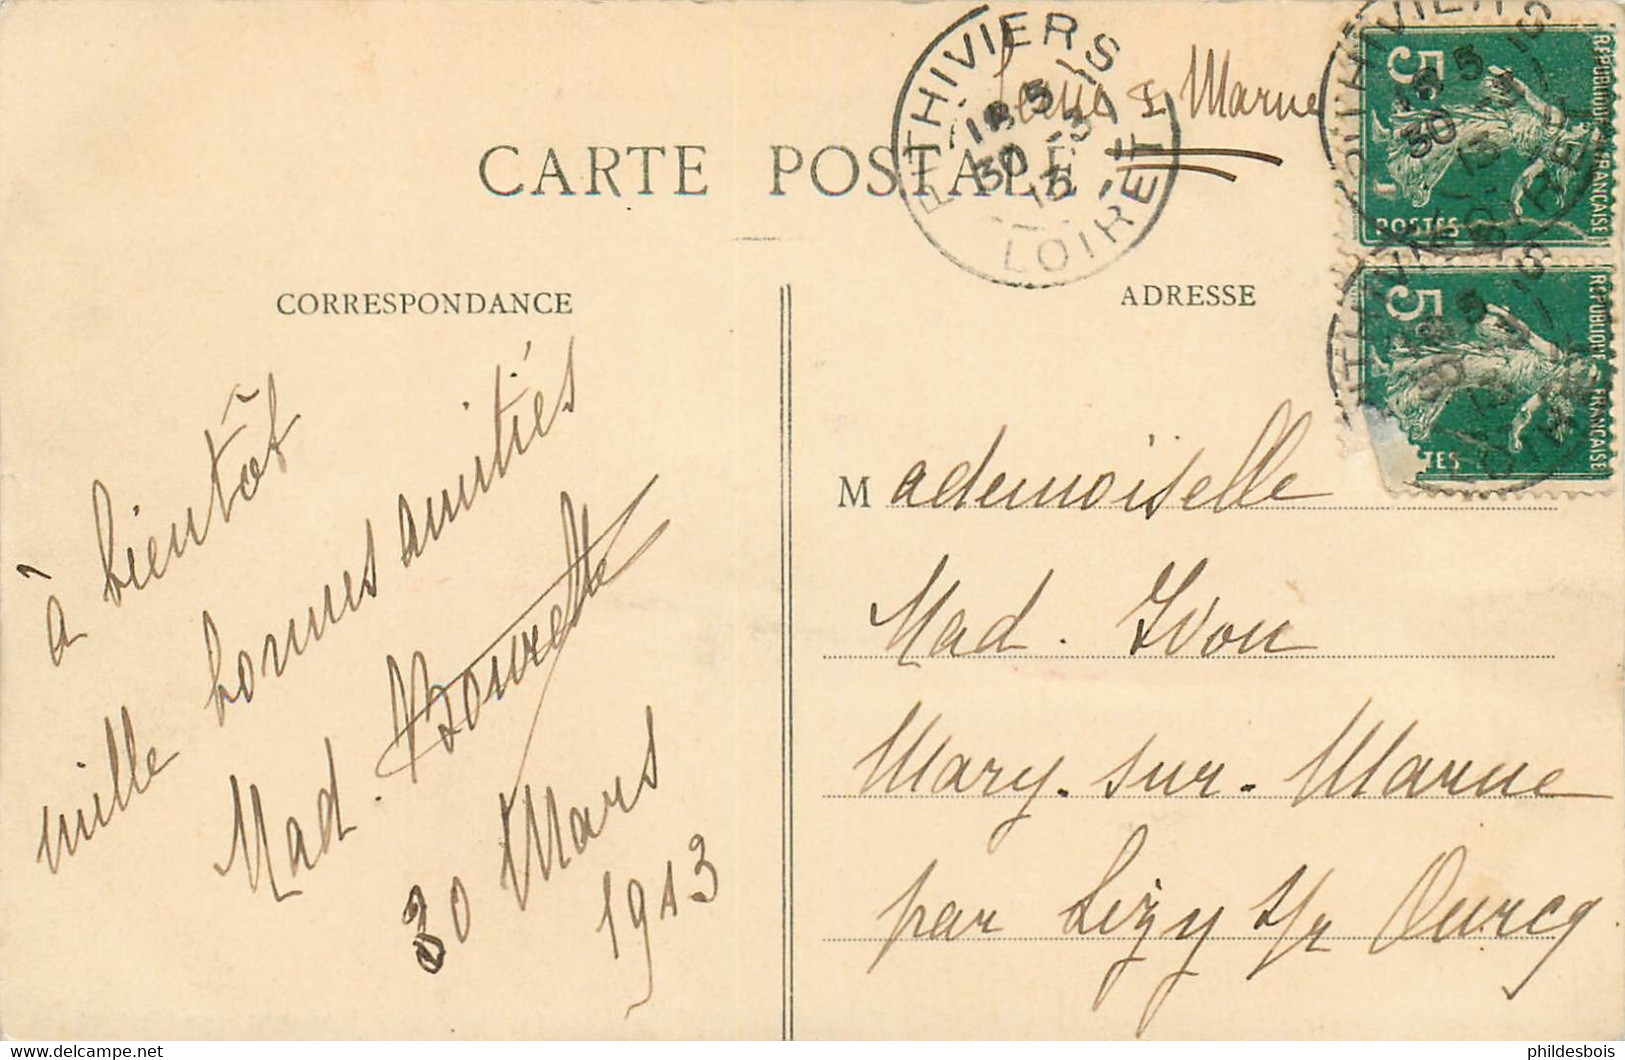 PITHIVIERS
18 5
30 -3
13
LOIRET
Seine & Marne
CARTE POSTALE
CORRESPONDANCE
ADRESSE
à bientôt
mille bonnes amitiés
Mad. Bourette
30 Mars
1913
Mademoiselle
Mad. Yvon
Mary-sur-Marne
par Lizy s/r Ourcq
5
POSTES
REPUBLIQUE FRANÇAISE
5
TES
REPUBLIQUE FRANÇAISE
phildesbois